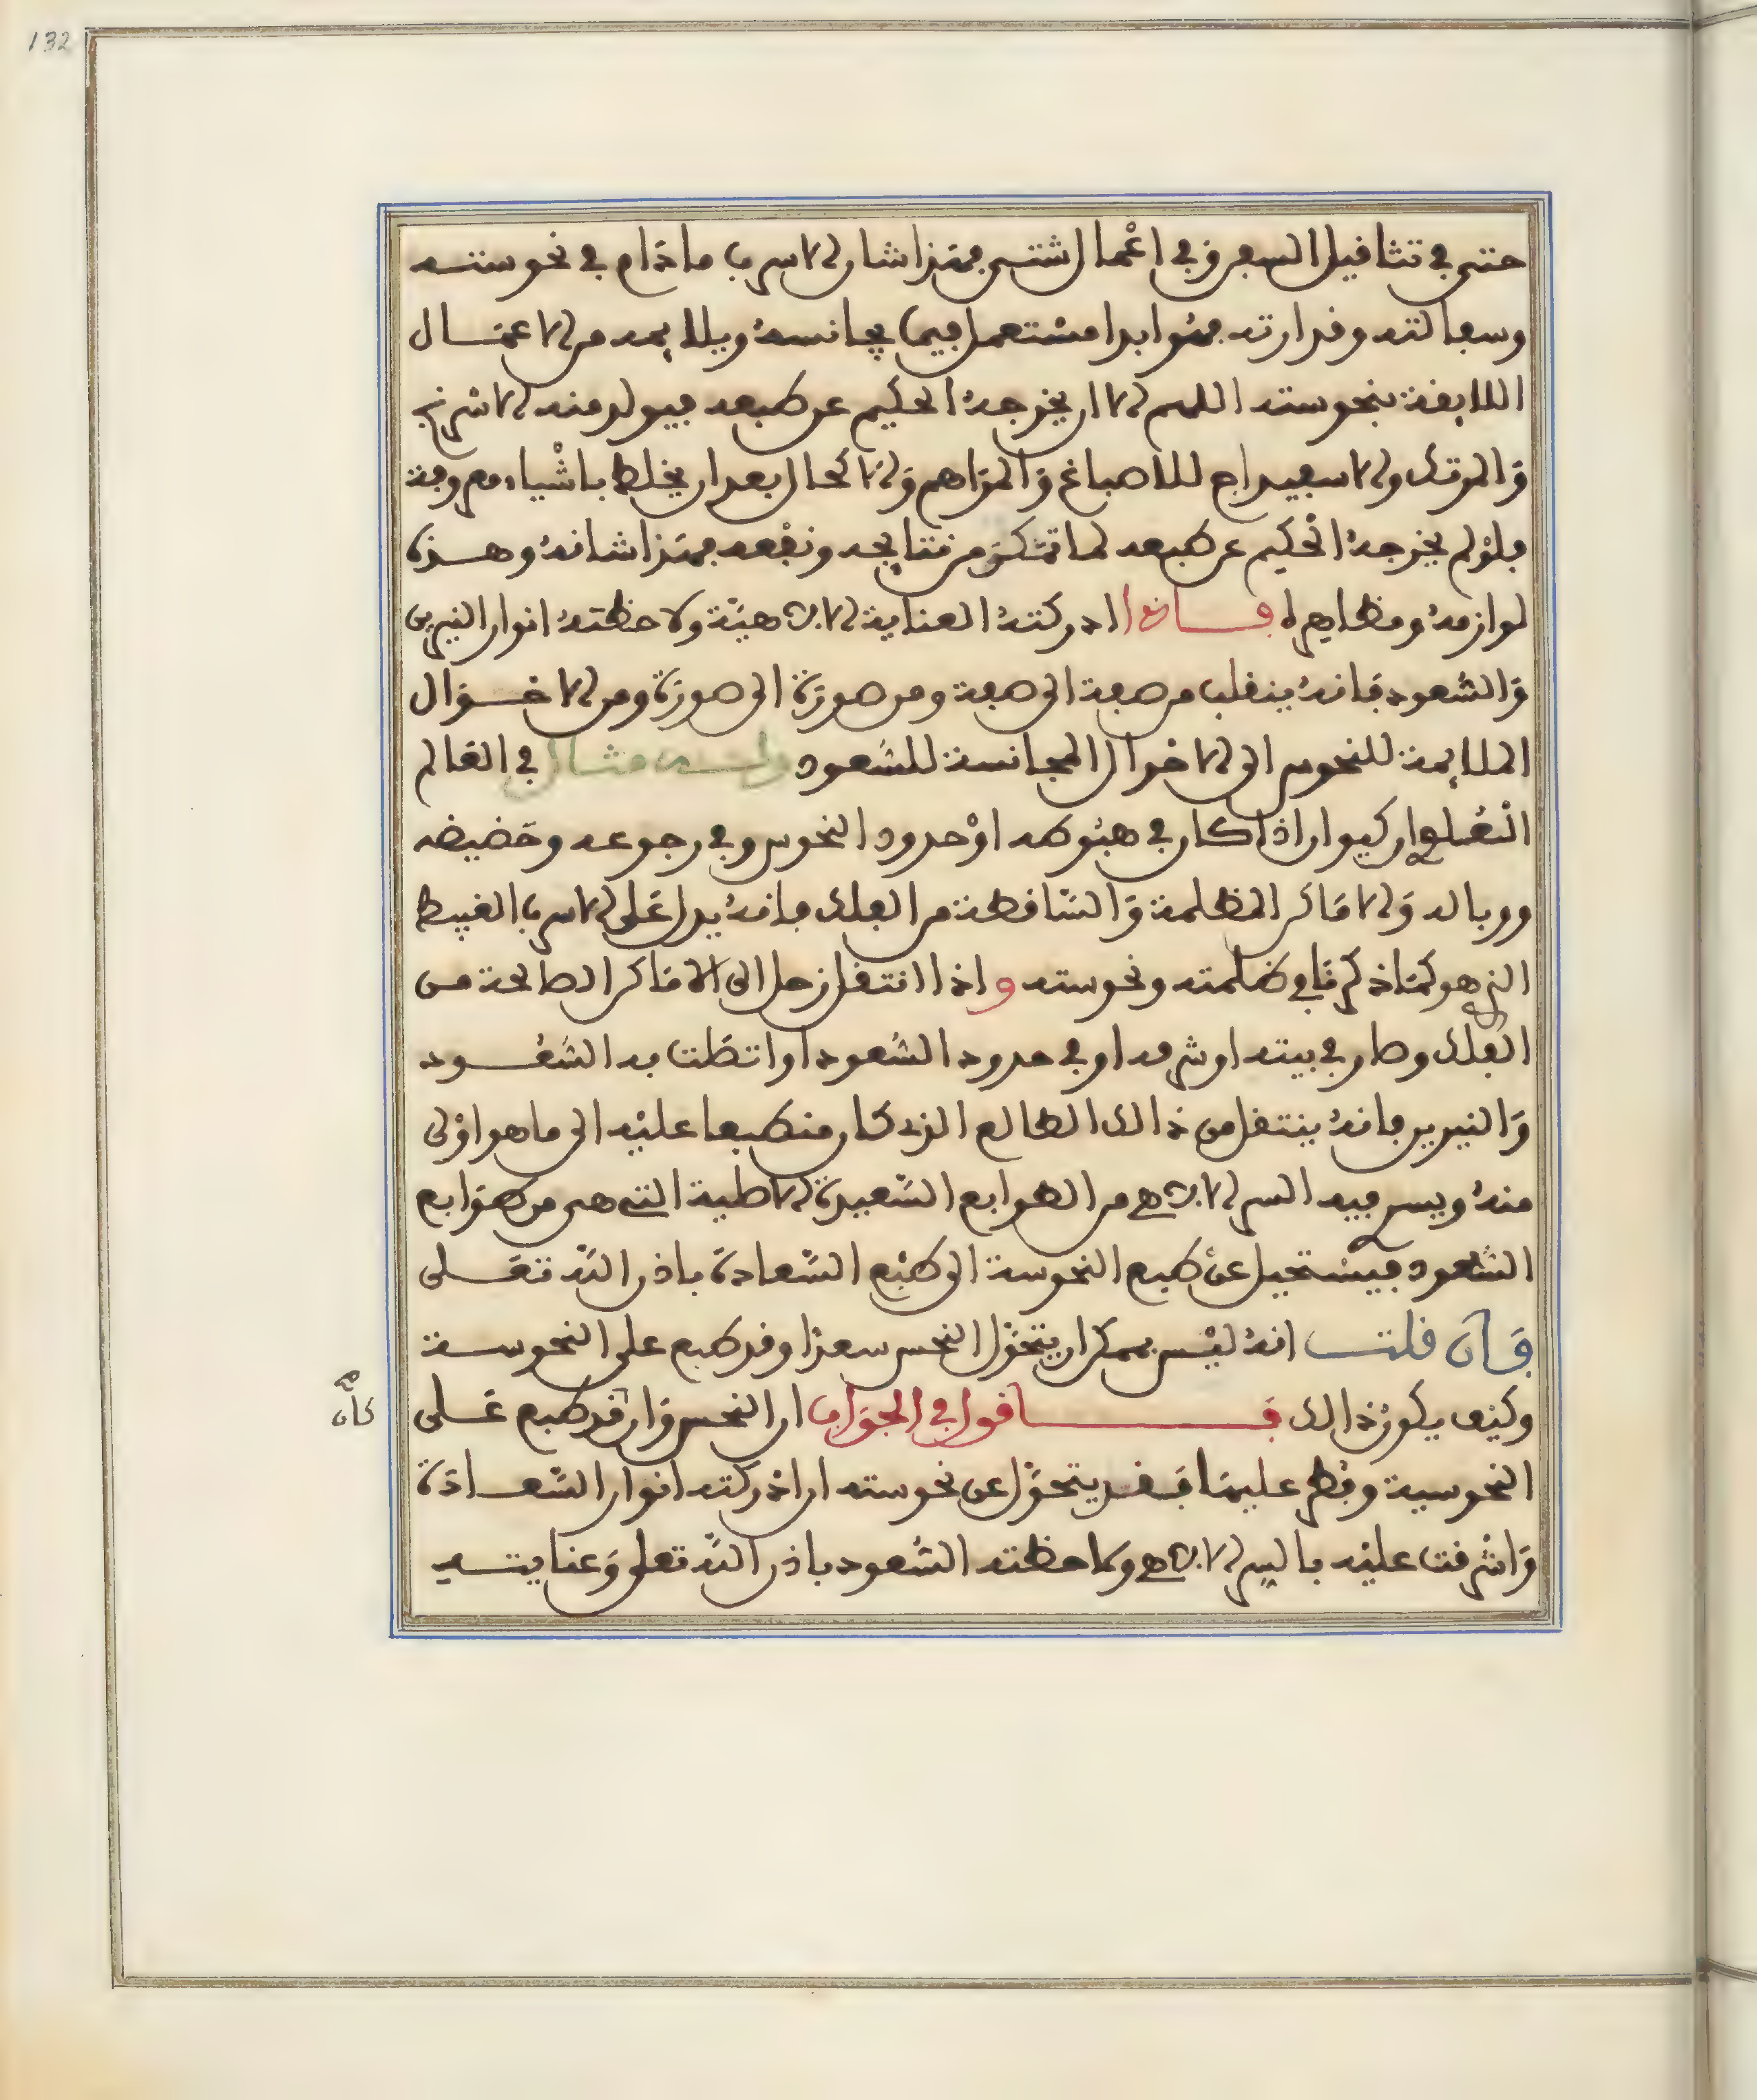 132
حتى في تثاقيل السفن وفي اعمال شتى فهذا شان الاسرب ما دام في نحوسته
وسفالته وقذارته فهو ابدا مستعمل فيما يجانسه ويلايمه من الاعمال
اللايقة بنحوسته اللهم الا ان يخرجه الحكيم عن طبعه فيولد منه الاسرنج
والمرتك والاسفيداج للاصباغ والمراهم والاكحال بعد ان يخلط باشياء معروفة
فلو لم يخرجه الحكيم عن طبعه لما تمكن من نتايجه ونفعه فهذا شانه وهذه
لوازمه ومظاهره فاذا ادركته العناية الالاهية ولاحظته انوار النيرين
والسعود فانه ينقلب من صفة الى صفة ومن صورة الى صورة ومن الاحوال
الملايمة للنحوس الى الاحوال المجانسة للسعود مثال في العالم
العلوي ان كيوان اذا كان في هبوطه او حدود النحوس وفي رجوعه وحضيضه
ووباله والاماكن المظلمة والساقطة من الفلك فانه يدل على الاسرب الغبيط
الذي هو كما ذكرنا في ظلمته ونحوسته واذا انتقل زحل الى الاماكن الصالحة من
الفلك وصار في بيته او شرفه او في حدود السعود او اتصلت به السعود
والنيرين فانه ينتقل من ذالك الطالع الذي كان منطبعا عليه الى ما هو اولى
منه ويسري فيه السر الالاهي من الطوابع السعيدة الاصلية التي هي من طوابع
السعود فيستحيل عن طبع النحوسة الى طبع السعادة باذن الله تعلى
فان قلت انه ليس بممكن ان يتحول النحس سعدا وقد طبع على النحوسة
وكيف يكون ذالك فاقول في الجواب ان النحس وان قد طبع على
كان
صح
النحوسية وفطر عليها فقد يتحول عن نحوسته ان ادركته انوار السعادة
واشرقت عليه بالسر الالاهي ولاحظته السعود باذن الله تعلى وعنايته